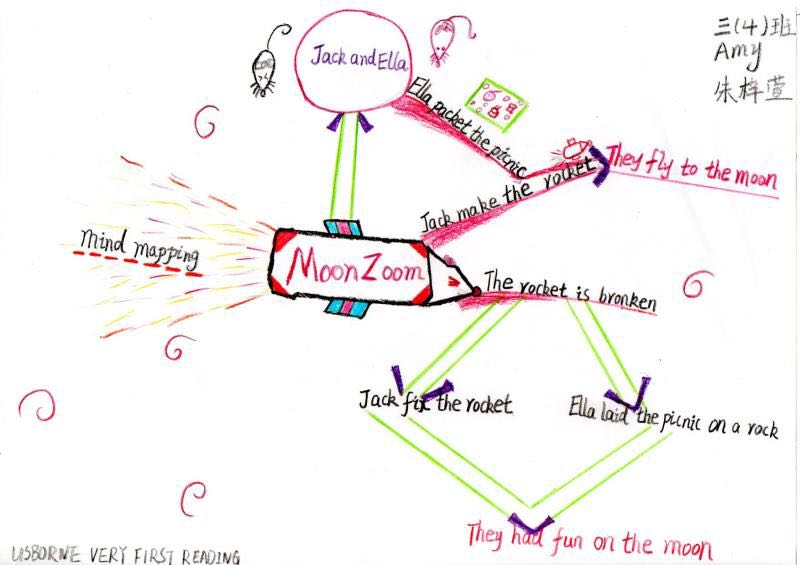 三(4)班
Amy
朱梓萱
Jack and Ella
Ella packet the picnic
Jack make the rocket
They fly to the moon
Mind mapping
Moon Zoom
The rocket is bronken
Jack fix the rocket
Ella laid the picnic on a rock
They had fun on the moon
USBORNE VERY FIRST READING